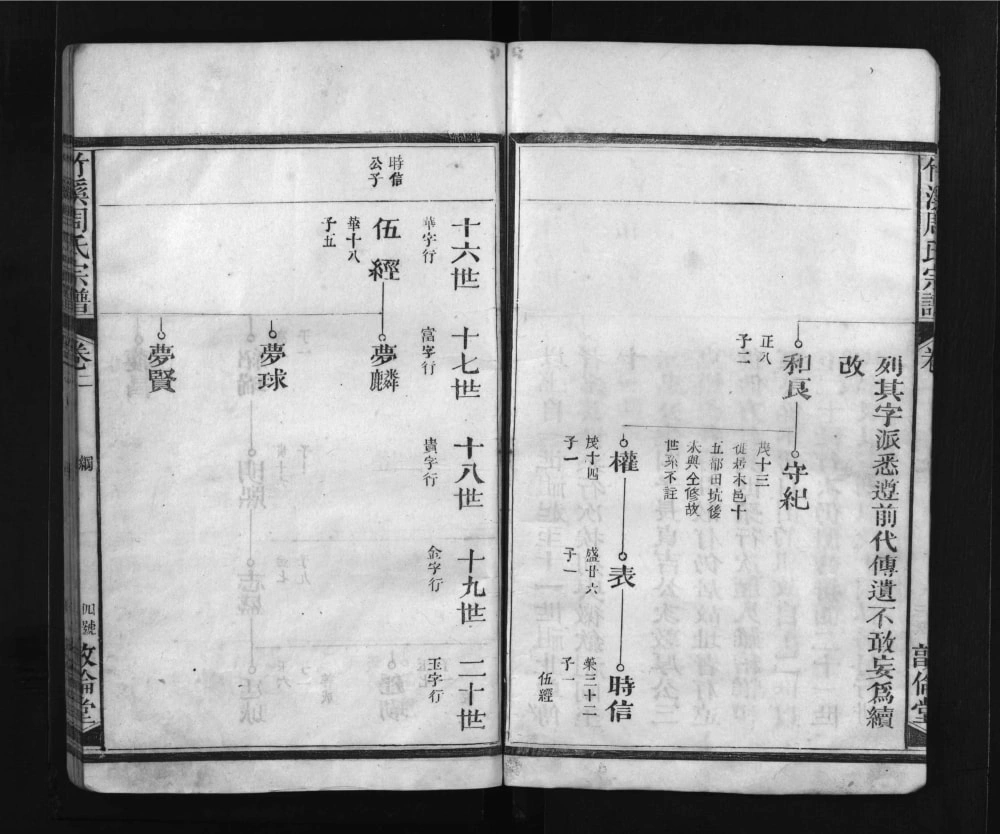 列其字派悉遵前代傳遺不敢妄爲續
改
和良
正八
子二
守紀
茂十三
從居木邑十
五都田坑後
未與仝修故
世系不註
權
茂十四
子一
表
盛廿六
子一
時信
榮三十二
子一
伍經
十六世
華字行
十七世
富字行
十八世
貴字行
十九世
金字行
二十世
玉字行
時信
公子
伍經
華十八
子五
夢麟
夢球
夢賢
竹溪周氏宗譜
卷二
綱
四號
敦倫堂